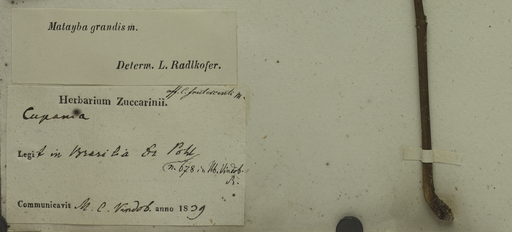 Matayba grandis m.
Determ. L. Radlkofer.
Herbarium Zuccarinii.
aff. C. frutescenti m.
Cupania
Legit in Brasilia Dr Pohl
n. 678 in Hb. Vindob.
Communicavit M. C. Vindob. anno 1839